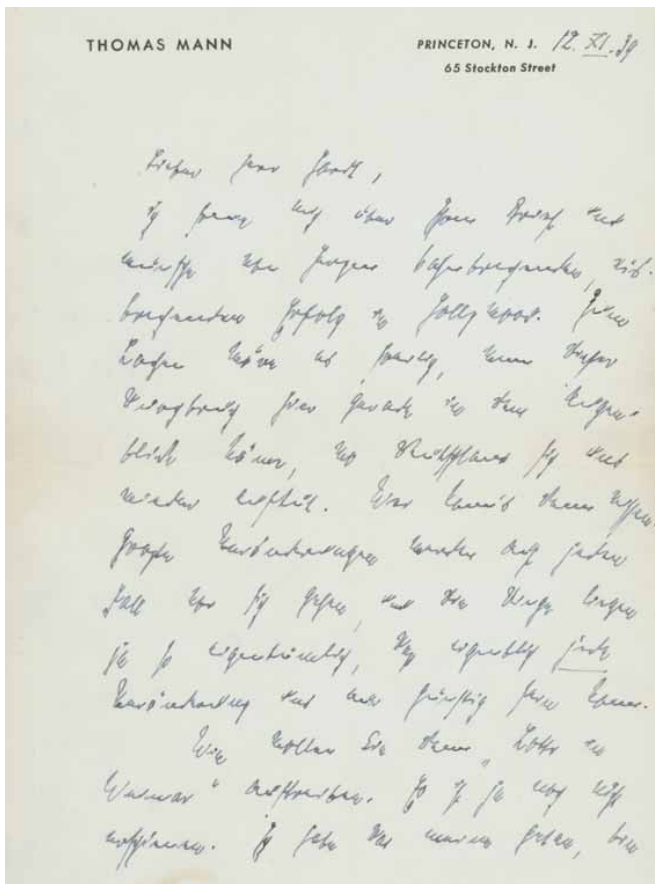 THOMAS MANN
PRINCETON, N. J. 12. XI. 39
65 Stockton Street
Lieber Herr Hardt,
ich freue mich über Ihren Brief und
wünsche von Herzen bahnbrechenden,
brechenden Erfolg in Hollywood. Zum
Lachen wäre es freilich, wenn dieser
Durchbruch hier gerade in dem Augen-
blick käme, wo Deutschland sich uns
wieder aufthut. Wer kann's denn wissen.
Große Veränderungen werden auf jeden
Fall vor sich gehen, und die Dinge liegen
ja so eigentümlich, daß eigentlich jede
Veränderung uns nur günstig sein kann.
Wie wollen Sie denn „Lotte in
Weimar" auftreiben. Es ist ja noch nicht
erschienen. Ich habe das meine gethan, bin